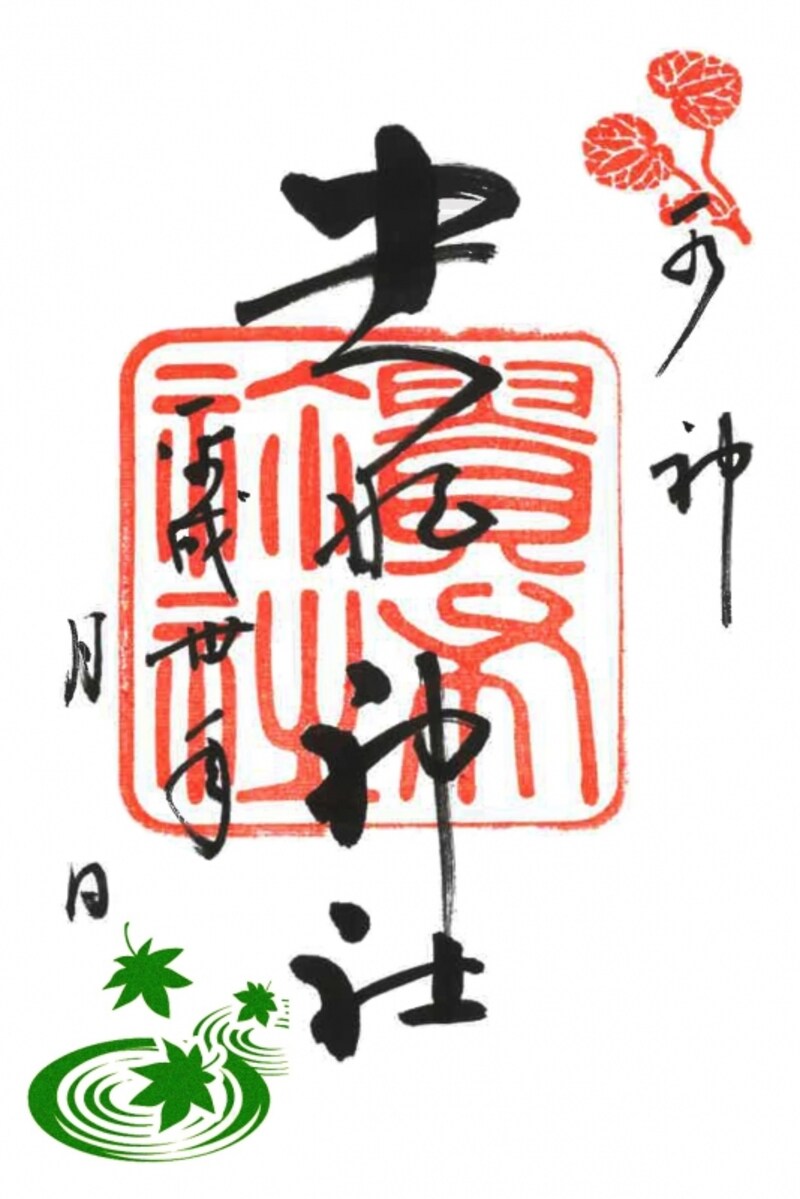 水神
貴船神社
貴布祢社
平成丗年
月 日